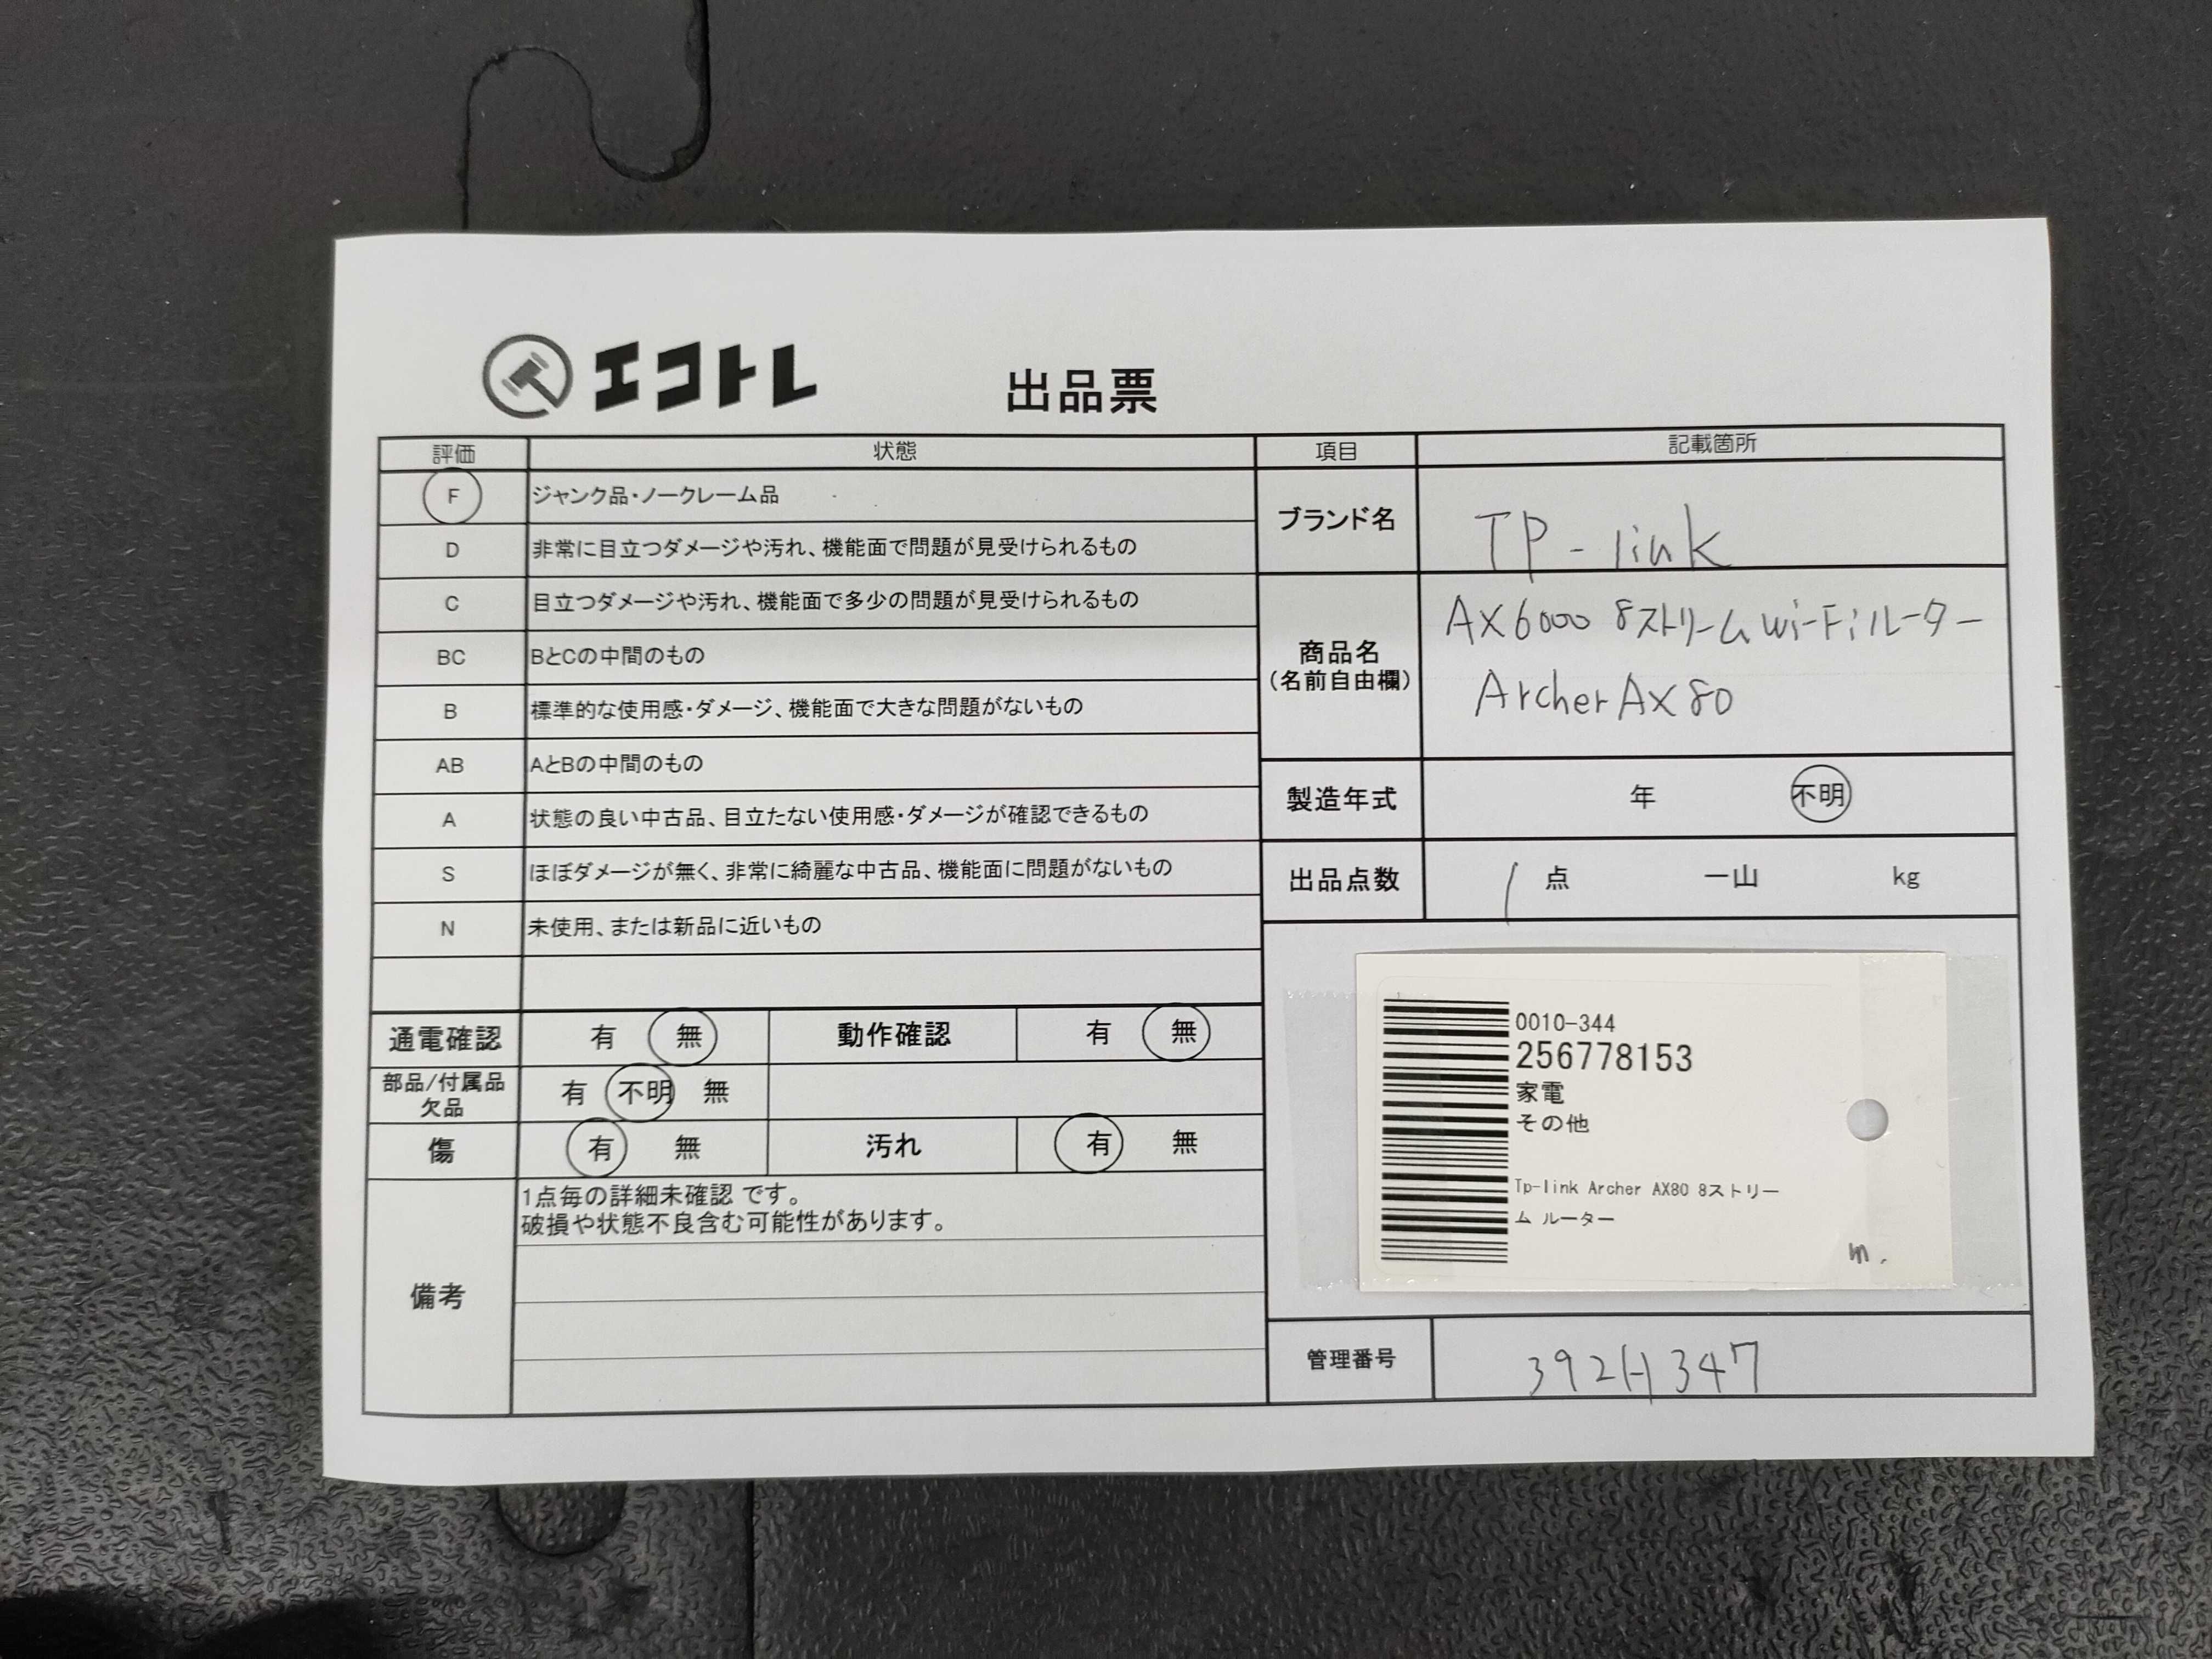 エコトレ
出品票
評価 状態
F ジャンク品・ノークレーム品
D 非常に目立つダメージや汚れ、機能面で問題が見受けられるもの
C 目立つダメージや汚れ、機能面で多少の問題が見受けられるもの
BC BとCの中間のもの
B 標準的な使用感・ダメージ、機能面で大きな問題がないもの
AB AとBの中間のもの
A 状態の良い中古品、目立たない使用感・ダメージが確認できるもの
S ほぼダメージが無く、非常に綺麗な中古品、機能面に問題がないもの
N 未使用、または新品に近いもの
通電確認 有 無 動作確認 有 無
部品/付属品
欠品
有 不明 無
傷 有 無 汚れ 有 無
備考
1点毎の詳細未確認 です。
破損や状態不良含む可能性があります。
項目 記載箇所
ブランド名 TP-link
商品名
(名前自由欄)
AX6000 8ストリームWi-Fiルーター
Archer AX80
製造年式 年 不明
出品点数 1 点 一山 kg
0010-344
256778153
家電
その他
Tp-link Archer AX80 8ストリー
ム ルーター
m.
管理番号 392H347